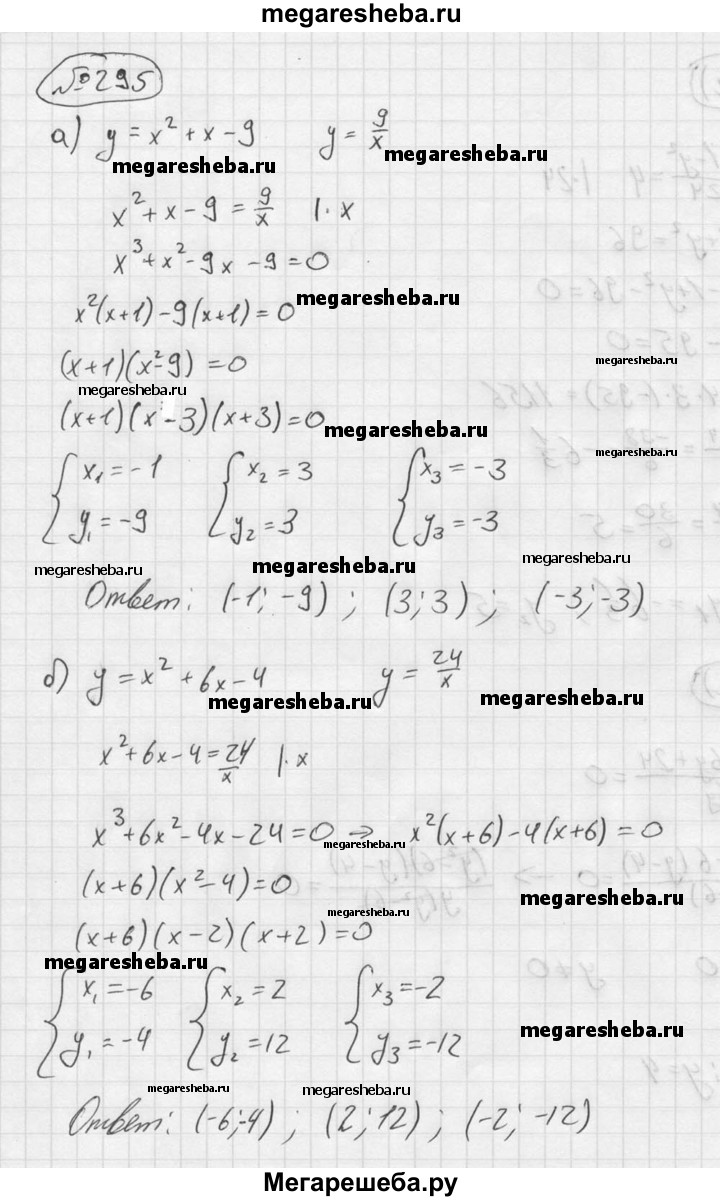 megaresheba.ru
№295
а) y = x² + x - 9 y = 9/x
megaresheba.ru megaresheba.ru
x² + x - 9 = 9/x |· x
x³ + x² - 9x - 9 = 0
megaresheba.ru
x²(x+1) - 9(x+1) = 0
(x+1)(x²-9) = 0
megaresheba.ru
megaresheba.ru
(x+1)(x-3)(x+3) = 0
megaresheba.ru
megaresheba.ru
{ x₁ = -1 { x₂ = 3 { x₃ = -3
y₁ = -9 y₂ = 3 y₃ = -3
megaresheba.ru megaresheba.ru megaresheba.ru
Ответ: (-1; -9) ; (3; 3) ; (-3; -3)
б) y = x² + 6x - 4 y = 24/x
megaresheba.ru megaresheba.ru
x² + 6x - 4 = 24/x |· x
x³ + 6x² - 4x - 24 = 0 ⇒ x²(x+6) - 4(x+6) = 0
megaresheba.ru
(x+6)(x²-4) = 0
megaresheba.ru
megaresheba.ru
(x+6)(x-2)(x+2) = 0
megaresheba.ru
{ x₁ = -6 { x₂ = 2 { x₃ = -2
megaresheba.ru
y₁ = -4 y₂ = 12 y₃ = -12
megaresheba.ru megaresheba.ru
Ответ: (-6; -4) ; (2; 12) ; (-2; -12)
Мегарешеба.ру